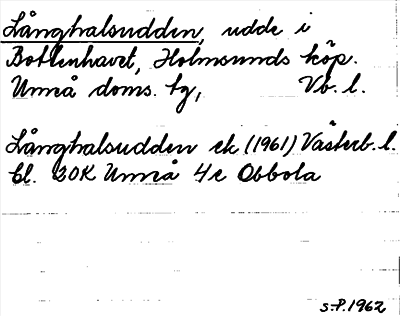 Långhalsudden, udde i
Bottenhavet, Holmsunds köp.
Umeå doms. tg, Vb. l.
Långhalsudden ek. (1961) Västerb. l.
bl. 20K Umeå 4e Obbola
S.P. 1962